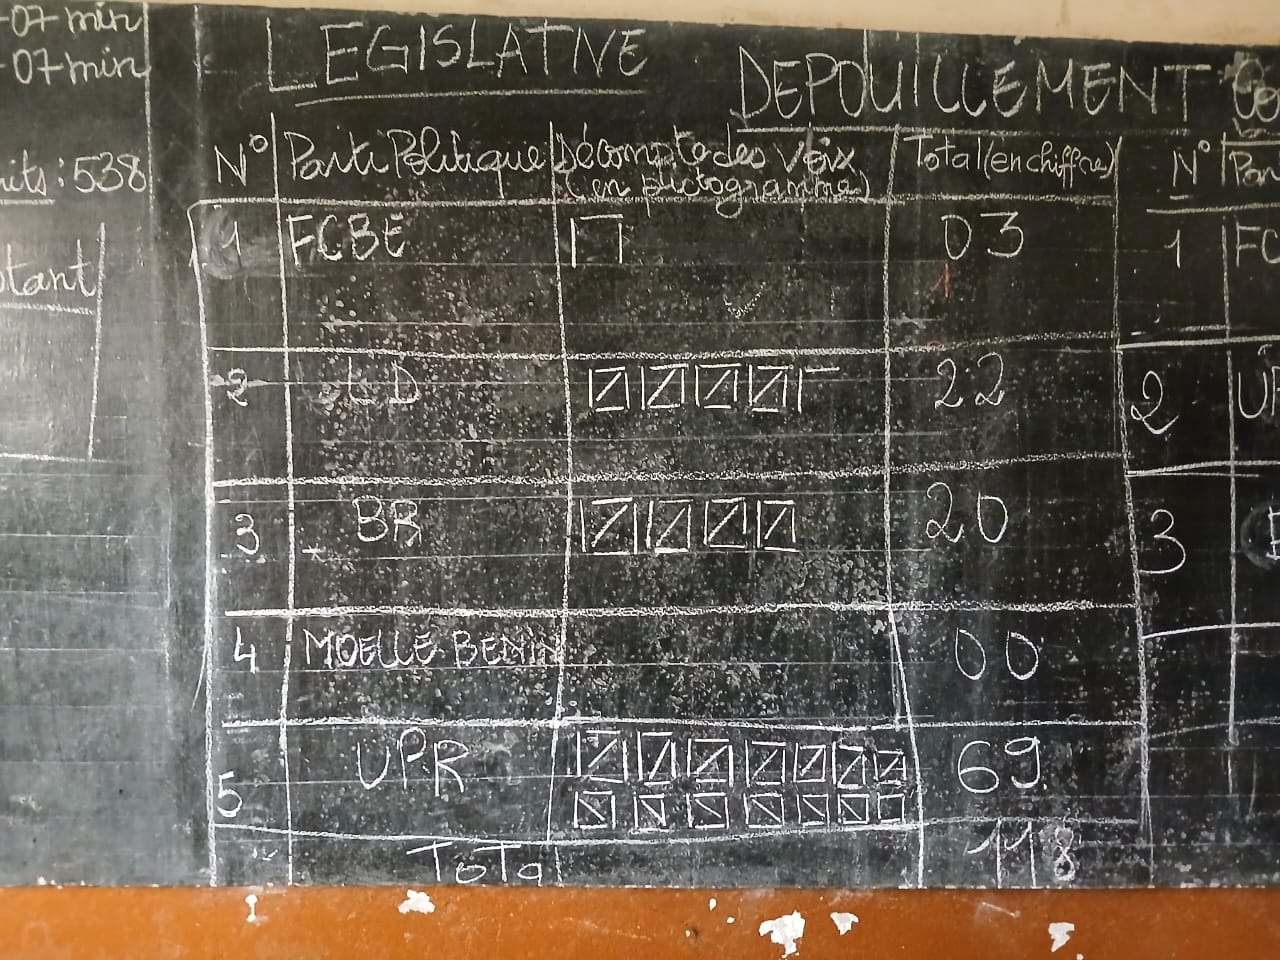 -07 min
-07 min
its : 538
tant
LEGISLATIVE
DEPOUILLEMENT
N° Parti Politique Décompte des voix (en pictogramme) Total (en chiffres)
1 FCBE 03
1
2 LD 22
3 BR 20
4 MOELLE BENIN 00
5 UPR 69
Tota 118
N° Par
1 FC
2 UP
3